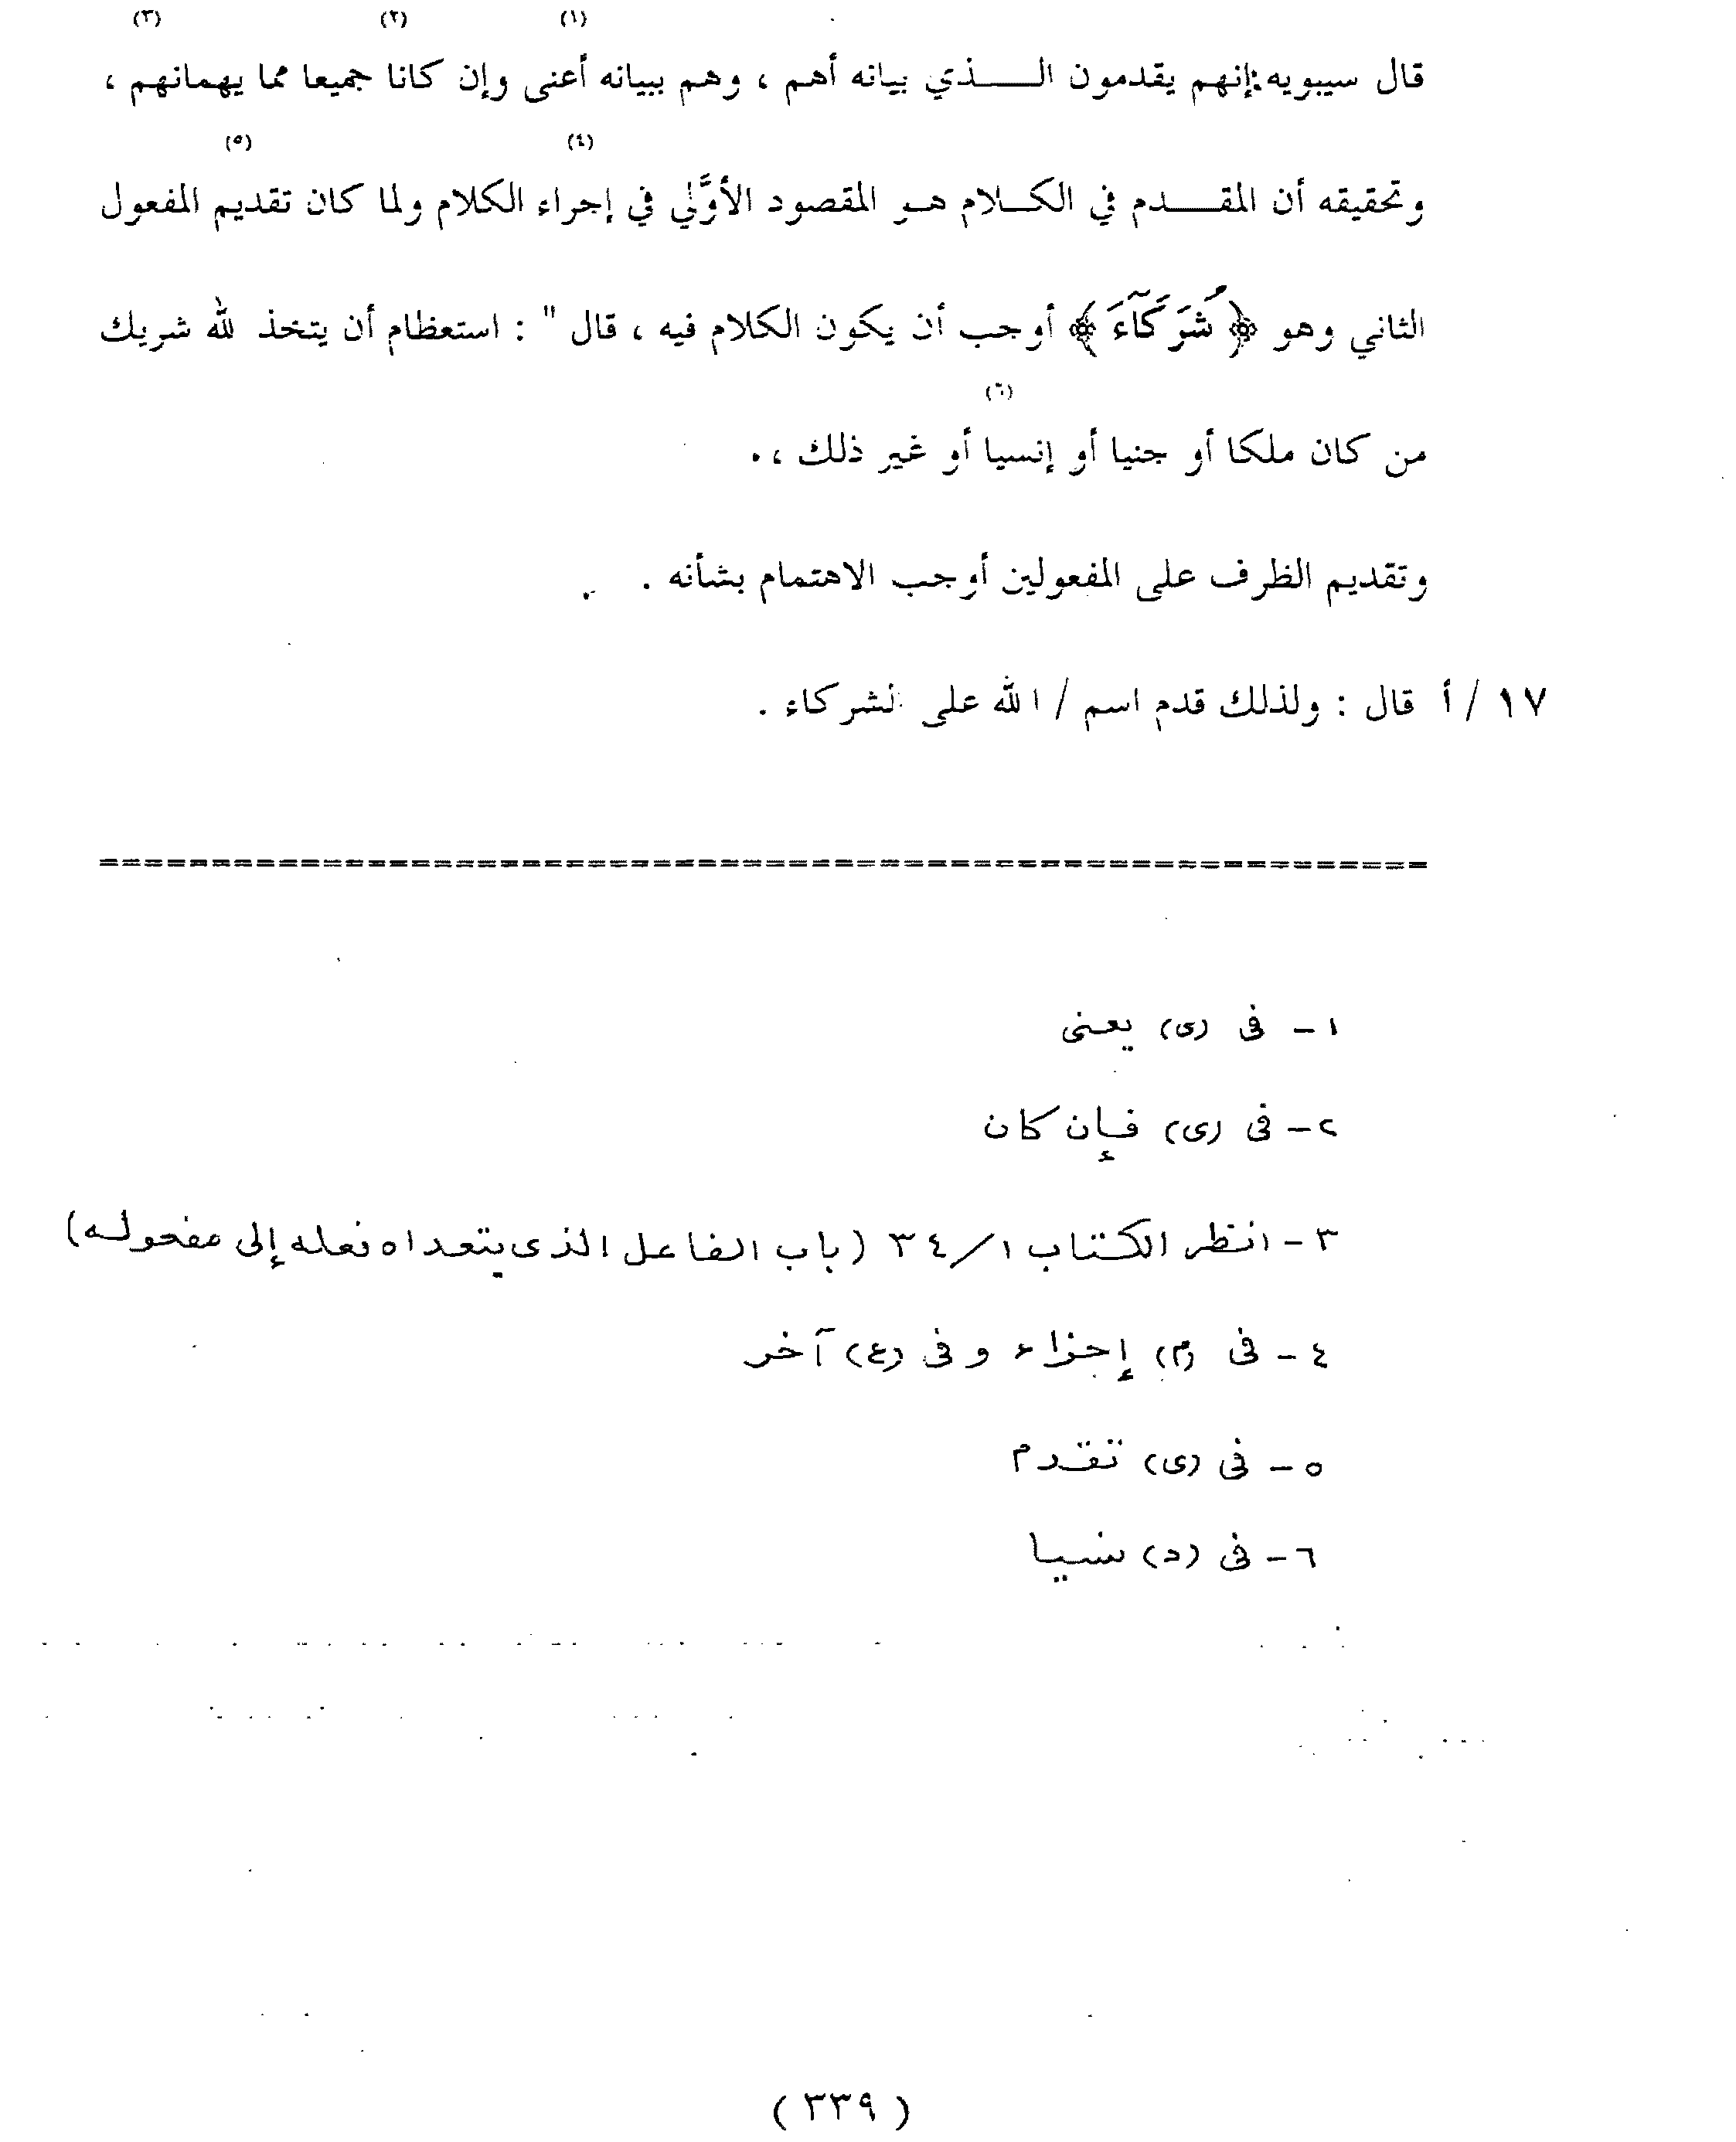 (١) (٢) (٣)
قال سيبويه:إنهم يقدمون الـــــذي بيانه أهم ، وهم ببيانه أعنى وإن كانا جميعا مما يهمانهم ،
(٤) (٥)
وتحقيقه أن المقـــدم في الكـــلام هـو المقصود الأوَّلي في إجراء الكلام ولما كان تقديم المفعول
الثاني وهو ﴿ شُرَكَآءَ ﴾ أوجب أن يكون الكلام فيه ، قال " : استعظام أن يتخذ لله شريك
(٦)
من كان ملكا أو جنيا أو إنسيا أو غير ذلك ،.
وتقديم الظرف على المفعولين أوجب الاهتمام بشأنه .
١٧ / أ قال : ولذلك قدم اسم / الله على لشركاء .
١- في (ى) يعنى
٢- في (ى) فإن كان
٣- انظر الكتاب ٣٤/١ (باب الفاعل الذى يتعداه فعله إلى مفعوله)
٤- في (م) إجزاء وفي (ع) آخر
٥- في (ى) تقدم
٦- في (د) نسيا
( ٣٣٩ )